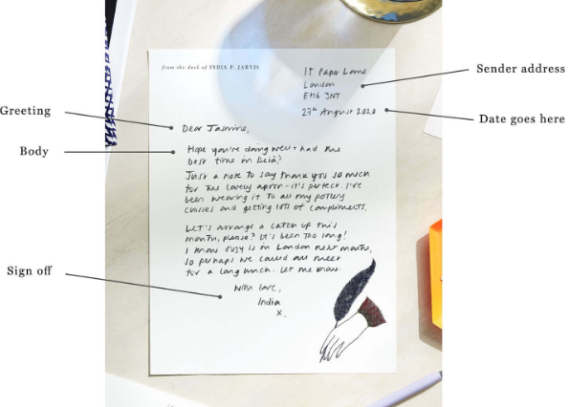 from the desk of INDIA P. JARVIS
17 Paper Lane
London
EH16 3NT
27th August 2020
Sender address
Date goes here
Greeting
Dear Jasmine,
Body
Hope you're doing well + had the
best time in
Just a note to say thank you so much
for the lovely apron - it's perfect. I've
been wearing it to all my pottery
classes and getting lots of compliments.
Let's arrange a catch up this
month, please? It's been too long!
I know is in London next month,
so perhaps we could all meet
for a long lunch. Let me know.
Sign off
With love,
India
x.